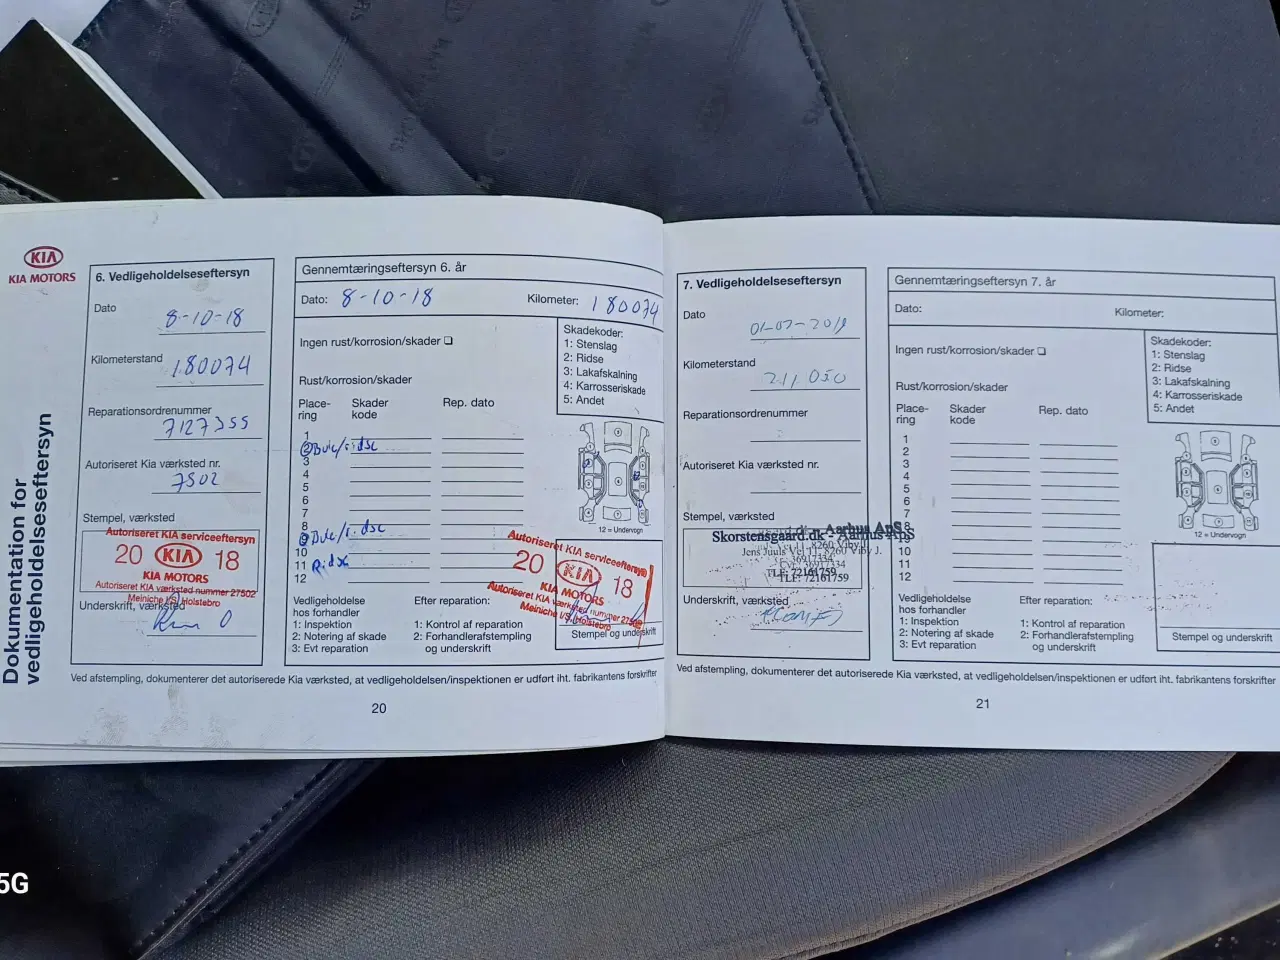 KIA
KIA MOTORS
Dokumentation for
vedligeholdelseseftersyn
6. Vedligeholdelseseftersyn
Dato
8-10-18
Kilometerstand
180074
Reparationsordrenummer
7127355
Autoriseret Kia værksted nr.
7502
Stempel, værksted
Autoriseret KIA serviceeftersyn
20 KIA 18
KIA MOTORS
Autoriseret KIA værksted nummer 27502
Meiniche I/S, Holstebro
Underskrift, værksted
Gennemtæringseftersyn 6. år
Dato: 8-10-18
Kilometer: 180074
Ingen rust/korrosion/skader
Rust/korrosion/skader
Place-
ring
Skader
kode
Rep. dato
1
2 Bule/ridse
3
4
5
6
7
8
9 Bule/ridse
10
11 Ridse
12
Skadekoder:
1: Stenslag
2: Ridse
3: Lakafskalning
4: Karrosseriskade
5: Andet
12 = Undervogn
Autoriseret KIA serviceeftersyn
20 KIA 18
KIA MOTORS
Autoriseret KIA værksted nummer 27502
Meiniche I/S, Holstebro
Stempel og underskrift
Vedligeholdelse
hos forhandler
1: Inspektion
2: Notering af skade
3: Evt reparation
Efter reparation:
1: Kontrol af reparation
2: Forhandlerafstempling
og underskrift
Ved afstempling, dokumenterer det autoriserede Kia værksted, at vedligeholdelsen/inspektionen er udført iht. fabrikantens forskrifter
20
7. Vedligeholdelseseftersyn
Dato
01-07-2019
Kilometerstand
211 050
Reparationsordrenummer
Autoriseret Kia værksted nr.
Stempel, værksted
Skorstensgaard.dk - Aarhus ApS
Jens Juuls Vej 11, 8260 Viby J.
36917334
TLF: 72161759
Underskrift, værksted
Gennemtæringseftersyn 7. år
Dato:
Kilometer:
Ingen rust/korrosion/skader
Rust/korrosion/skader
Place-
ring
Skader
kode
Rep. dato
1
2
3
4
5
6
7
8
9
10
11
12
Skadekoder:
1: Stenslag
2: Ridse
3: Lakafskalning
4: Karrosseriskade
5: Andet
12 = Undervogn
Vedligeholdelse
hos forhandler
1: Inspektion
2: Notering af skade
3: Evt reparation
Efter reparation:
1: Kontrol af reparation
2: Forhandlerafstempling
og underskrift
Stempel og underskrift
Ved afstempling, dokumenterer det autoriserede Kia værksted, at vedligeholdelsen/inspektionen er udført iht. fabrikantens forskrifter
21
5G